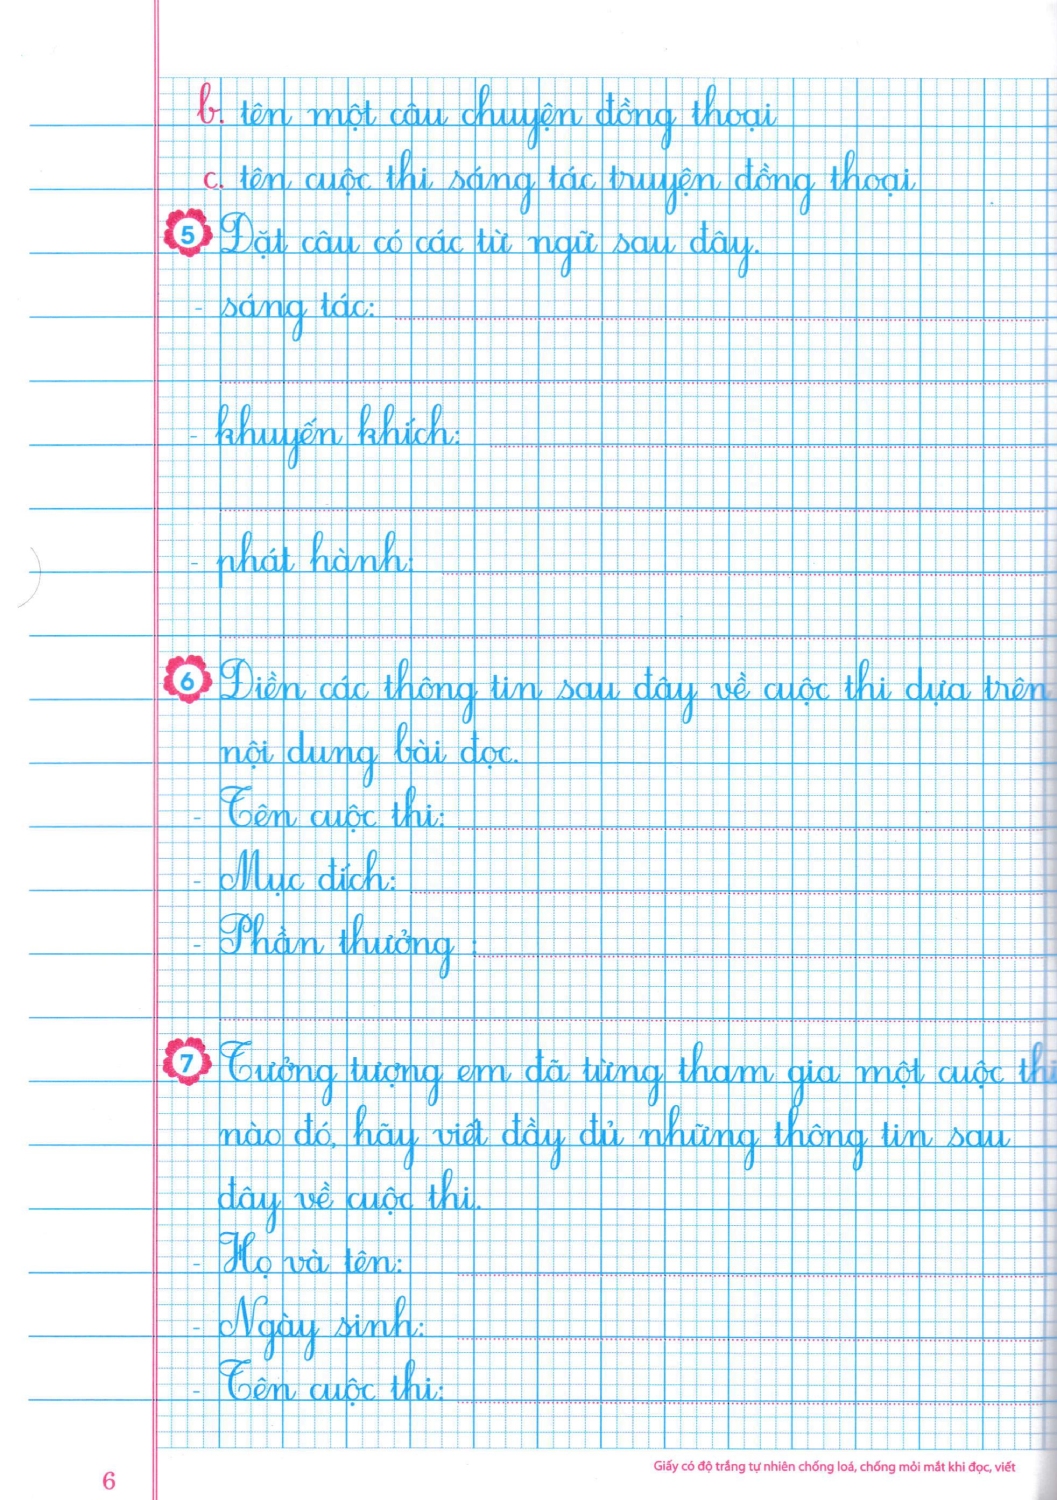 b. tên một câu chuyện đồng thoại
c. tên cuộc thi sáng tác truyện đồng thoại
5 Đặt câu có các từ ngữ sau đây.
- sáng tác:
- khuyến khích:
- phát hành:
6 Điền các thông tin sau đây về cuộc thi dựa trên
nội dung bài đọc.
- Tên cuộc thi:
- Mục đích:
- Phần thưởng :
7 Tưởng tượng em đã từng tham gia một cuộc thi
nào đó, hãy viết đầy đủ những thông tin sau
đây về cuộc thi.
- Họ và tên:
- Ngày sinh:
- Tên cuộc thi:
Giấy có độ trắng tự nhiên chống loá, chống mỏi mắt khi đọc, viết
6